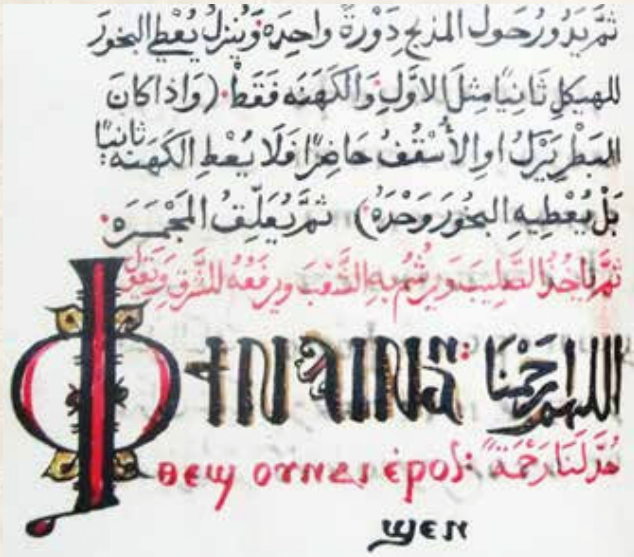 ثمَّ يَدُورُ حَول المذبح دَوْرَةً واحِدَه وَيَنزلُ يُعْطي البخورَ
للهيكلِ ثَانِيًا مِثلَ الاوَّلِ وَالكَهَنَه فَقَطْ. (وَاذا كانَ
البَطْرِيَرْكُ اوالأُسْقُفُ حَاضِرًا فَلَا يُعْطِ الكَهَنَه ثانيًا:
بَلْ يُعْطِيهِ البخُورَ وَحْدَهُ) ثمَّ يُعَلِّقُ المَجْمَرَه.
ثمَّ يَاخُذُ الصَّلِيبَ وَيَرشُمُ بهِ الشَّعْبَ ويرفَعُهُ للشَّرْقِ وَيَقولُ
Ⲫϯ ⲛⲁⲓ ⲛⲁⲛ اللهم ارحَمْنا
ⲑⲉϣ ⲟⲩⲛⲁⲓ ⲉ̀ⲣⲟⲛ: لَنَا رَحْمَةً
ϣⲉⲛ